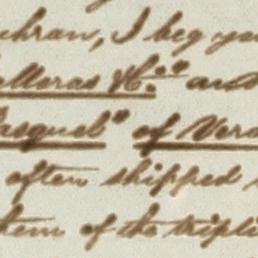 chran, I beg you
elleras Hº." and
asquel" of Vera
often shipped
them of the tripli